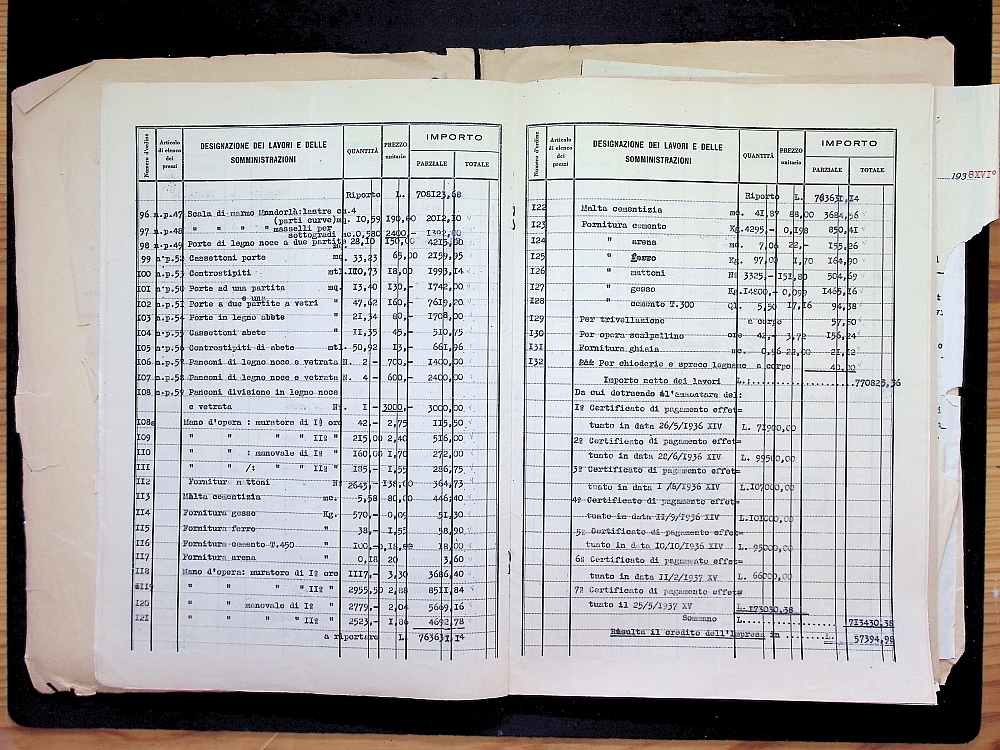 Numero d'ordine Articolo di elenco dei prezzi DESIGNAZIONE DEI LAVORI E DELLE SOMMINISTRAZIONI QUANTITÀ PREZZO unitario IMPORTO PARZIALE TOTALE
Riporto L. 708123,68
96 n.p.47 Scala di marmo Mandorlà:lastre cm.4
(parti curve)mq. 10,59 190,00 2012,10
97 n.p.48 " " " " masselli per
sottogradi mc.0,580 2400,- 1392,00
98 n.p.49 Porte di legno noce a due partite mq. 28,10 150,00 4215,00
99 n.p.52 Cassettoni porte mq. 33,23 65,00 2159,95
I00 n.p.53 Controstipiti mtl.IIO,73 18,00 1993,14
IOI n.p.50 Porte ad una partita mq. 13,40 130,- 1742,00
e una
IO2 n.p.51 Porte a due partite a vetri " 47,62 160,- 7619,20
IO3 n.p.54 Porte in legno abete " 21,34 80,- 1708,00
IO4 n.p.55 Cassettoni abete " II,35 45,- 510,75
IO5 n.p.56 Controstipiti di abete mtl. 50,92 13,- 661,96
IO6 n.p.57 Panconi di legno noce e vetrata N. 2 - 700,- 1400,00
IO7 n.p.58 Panconi di legno noce e vetrata N. 4 - 600,- 2400,00
IO8 n.p.59 Panconi divisione in legno noce
e vetrata Nº. I - 3000,- 3000,00
IO8a Mano d'opera : muratore di Iª ore 42,- 2,75 115,50
IO9 " " " " IIª " 215,00 2,40 516,00
IIO " " : manovale di Iª " 160,00 1,70 272,00
III " " /: " " IIª " 185,- 1,55 286,75
II2 Fornitura mattoni Nº 2643,- 138,00 364,73
II3 Malta cementizia mc. 5,58 80,00 446,40
II4 Fornitura gesso Kg. 570,- 0,09 51,30
II5 Fornitura ferro " 38,- 1,55 58,90
II6 Fornitura cemento T.450 " 100,- 0,18 18,00
II7 Fornitura arena " 0,18 20 3,60
II8 Mano d'opera: muratore di Iª ore III7,- 3,30 3686,40
II9 " " " " IIª " 2955,50 2,88 8511,84
I20 " " manovale di Iª " 2779,- 2,04 5669,16
I2I " " " " IIª " 2523,- 1,86 4692,78
a riportare L. 763631,14
Numero d'ordine Articolo di elenco dei prezzi DESIGNAZIONE DEI LAVORI E DELLE SOMMINISTRAZIONI QUANTITÀ PREZZO unitario IMPORTO PARZIALE TOTALE
Riporto L. 763631,14
I22 Malta cementizia mc. 41,87 88,00 3684,56
I23 Fornitura cemento Kg.4295,- 0,198 850,41
I24 " arena mc. 7,06 22,- 155,26
I25 " ferro Kg. 97,00 1,70 164,90
I26 " mattoni Nº 3325,- 151,80 504,69
I27 " gesso Kg.14800,- 0,099 1465,16
I28 " cemento T.300 Ql. 5,50 17,16 94,38
I29 Per trivellazione a corpo 57,50
I30 Per opera scalpellino ore 42,- 3,72 156,24
I3I Fornitura ghiaia mc. 0,96 22,00 21,12
I32 Per chioderie e spreco legname a corpo 40,00
Importo netto dei lavori L.:..............770825,36
Da cui detraendo l'ammontare del:
1º Certificato di pagamento effet=
tuato in data 26/5/1936 XIV L. 71900,00
2º Certificato di pagamento effet=
tuato in data 22/6/1936 XIV L. 99500,00
3º Certificato di pagamento effet=
tuato in data I /8/1936 XIV L.107000,00
4º Certificato di pagamento effet=
tuato in data II/9/1936 XIV L.101000,00
5º Certificato di pagamento effet=
tuato in data IO/IO/1936 XIV L. 95000,00
6º Certificato di pagamento effet=
tuato in data II/2/1937 XV L. 66000,00
7º Certificato di pagamento effet=
tuato il 25/5/1937 XV L. 173030.38
Sommano L................ 713430.38
Risulta il credito dell'Impresa in .........L. 57394,98
1938XVIº